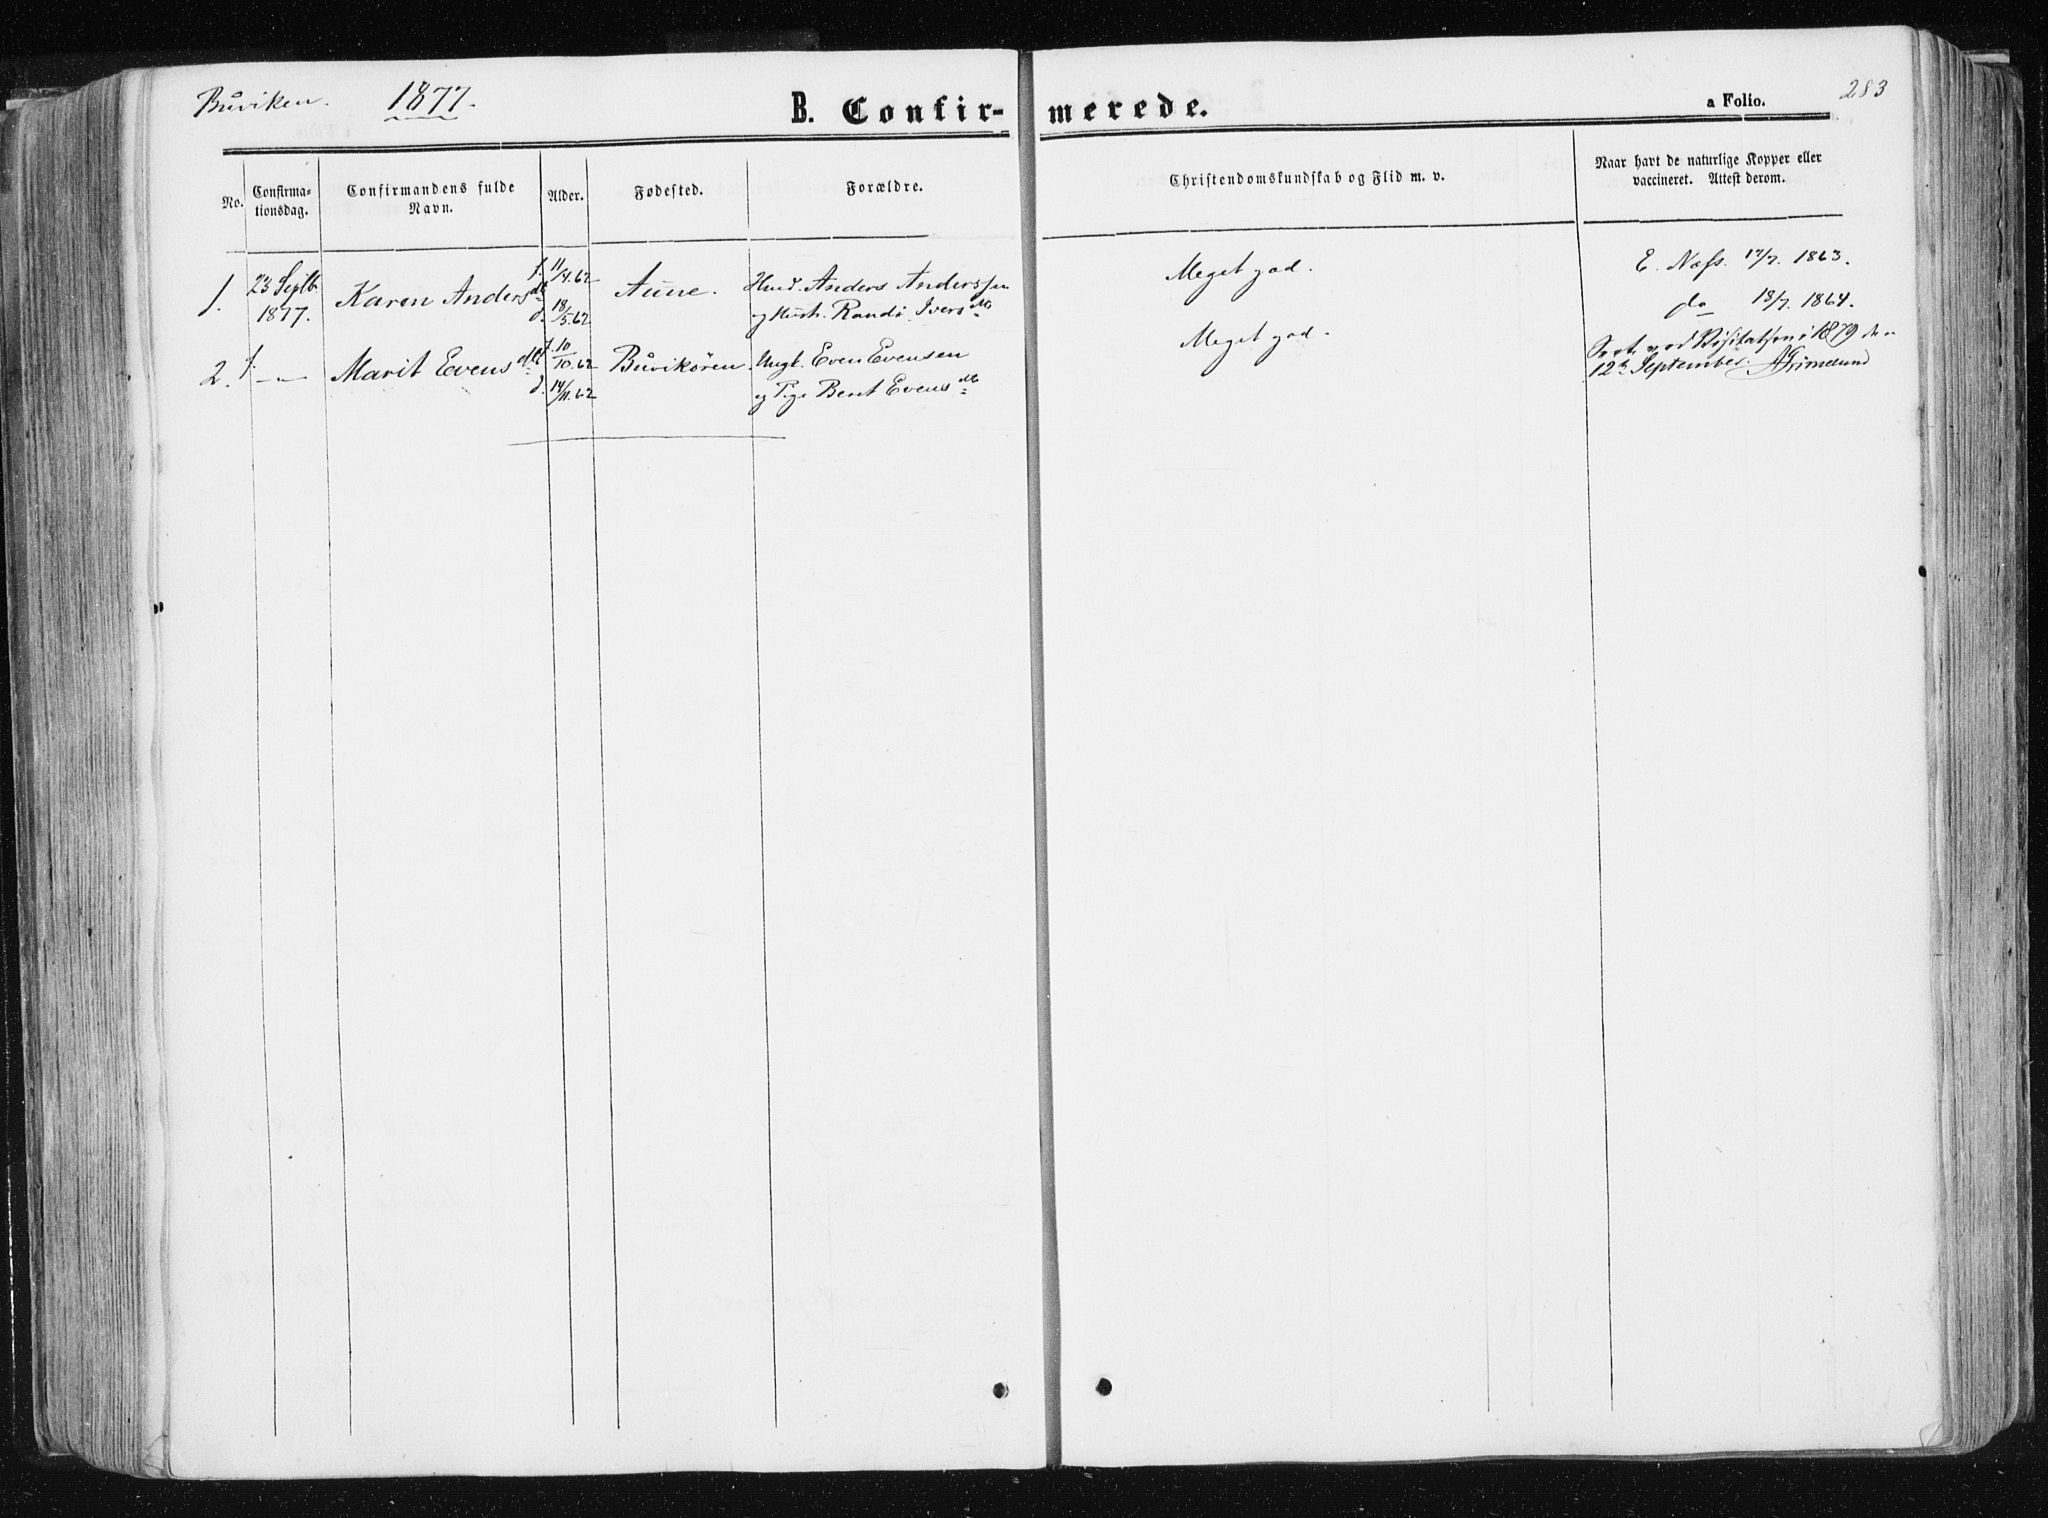 Buviken. 1877.
B. Confir- merede. a Folio. 283
No. Confirma-tionsdag. Confirmandens fulde Navn. Alder. Fødested. Forældre. Christendomskundskab og Flid m. v. Naar havt de naturlige Kopper eller vaccineret. Attest derom.
1. 23 Septb. 1877. Karen Anders dtr f. 11/4.62 d. 18/5.62 Aune. Huusm. Anders Anderssen
og Hustr. Randi Ivers dtr Meget god. E. Næss. 17/7. 1863.
2. f. -„- Marit Evens dtr f. 10/10.62 d. 14/11.62 Buvikøren. Ungk. Even Evensen
og Pige Beret Evens dtr Meget god. do 18/7. 1864.
Seet ved Visitatsen i 1879 den
12te September. A Grimelund